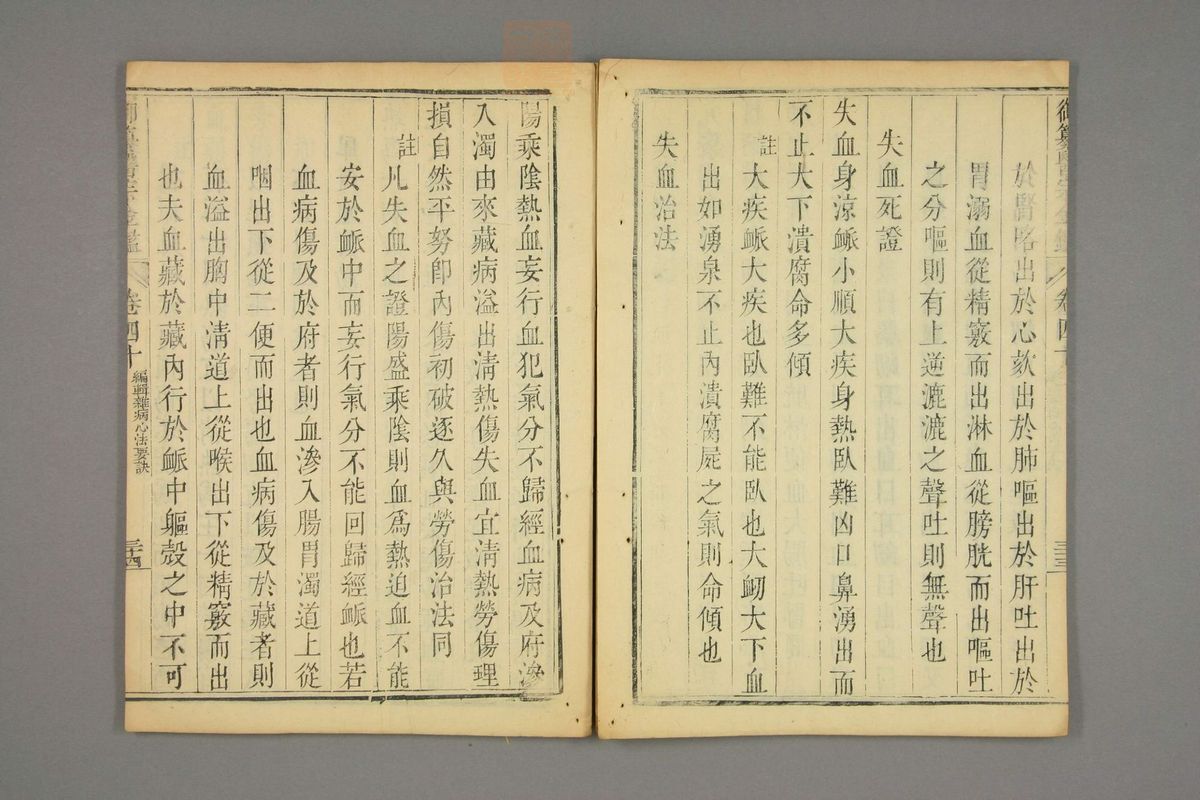 御纂醫宗金鑑 卷四十 三十三
於腎咯出於心欬出於肺嘔出於肝吐出於
胃溺血從精竅而出淋血從膀胱而出嘔吐
之分嘔則有上逆漉漉之聲吐則無聲也
失血死證
失血身涼䘑小順大疾身熱臥難凶口鼻湧出而
不止大下潰腐命多傾
註大疾䘑大疾也臥難不能臥也大衂大下血
出如湧泉不止內潰腐屍之氣則命傾也
失血治法
陽乘陰熱血妄行血犯氣分不歸經血病及府滲
入濁由來藏病溢出淸熱傷失血宜淸熱勞傷理
損自然平努卽內傷初破逐久與勞傷治法同
註凡失血之證陽盛乘陰則血爲熱迫血不能
安於䘑中而妄行氣分不能回歸經䘑也若
血病傷及於府者則血滲入腸胃濁道上從
咽出下從二便而出也血病傷及於藏者則
血溢出胸中淸道上從喉出下從精竅而出
也夫血藏於藏內行於䘑中軀殼之中不可
御纂醫宗金鑑 卷四十 編輯雜病心法要訣 三十四